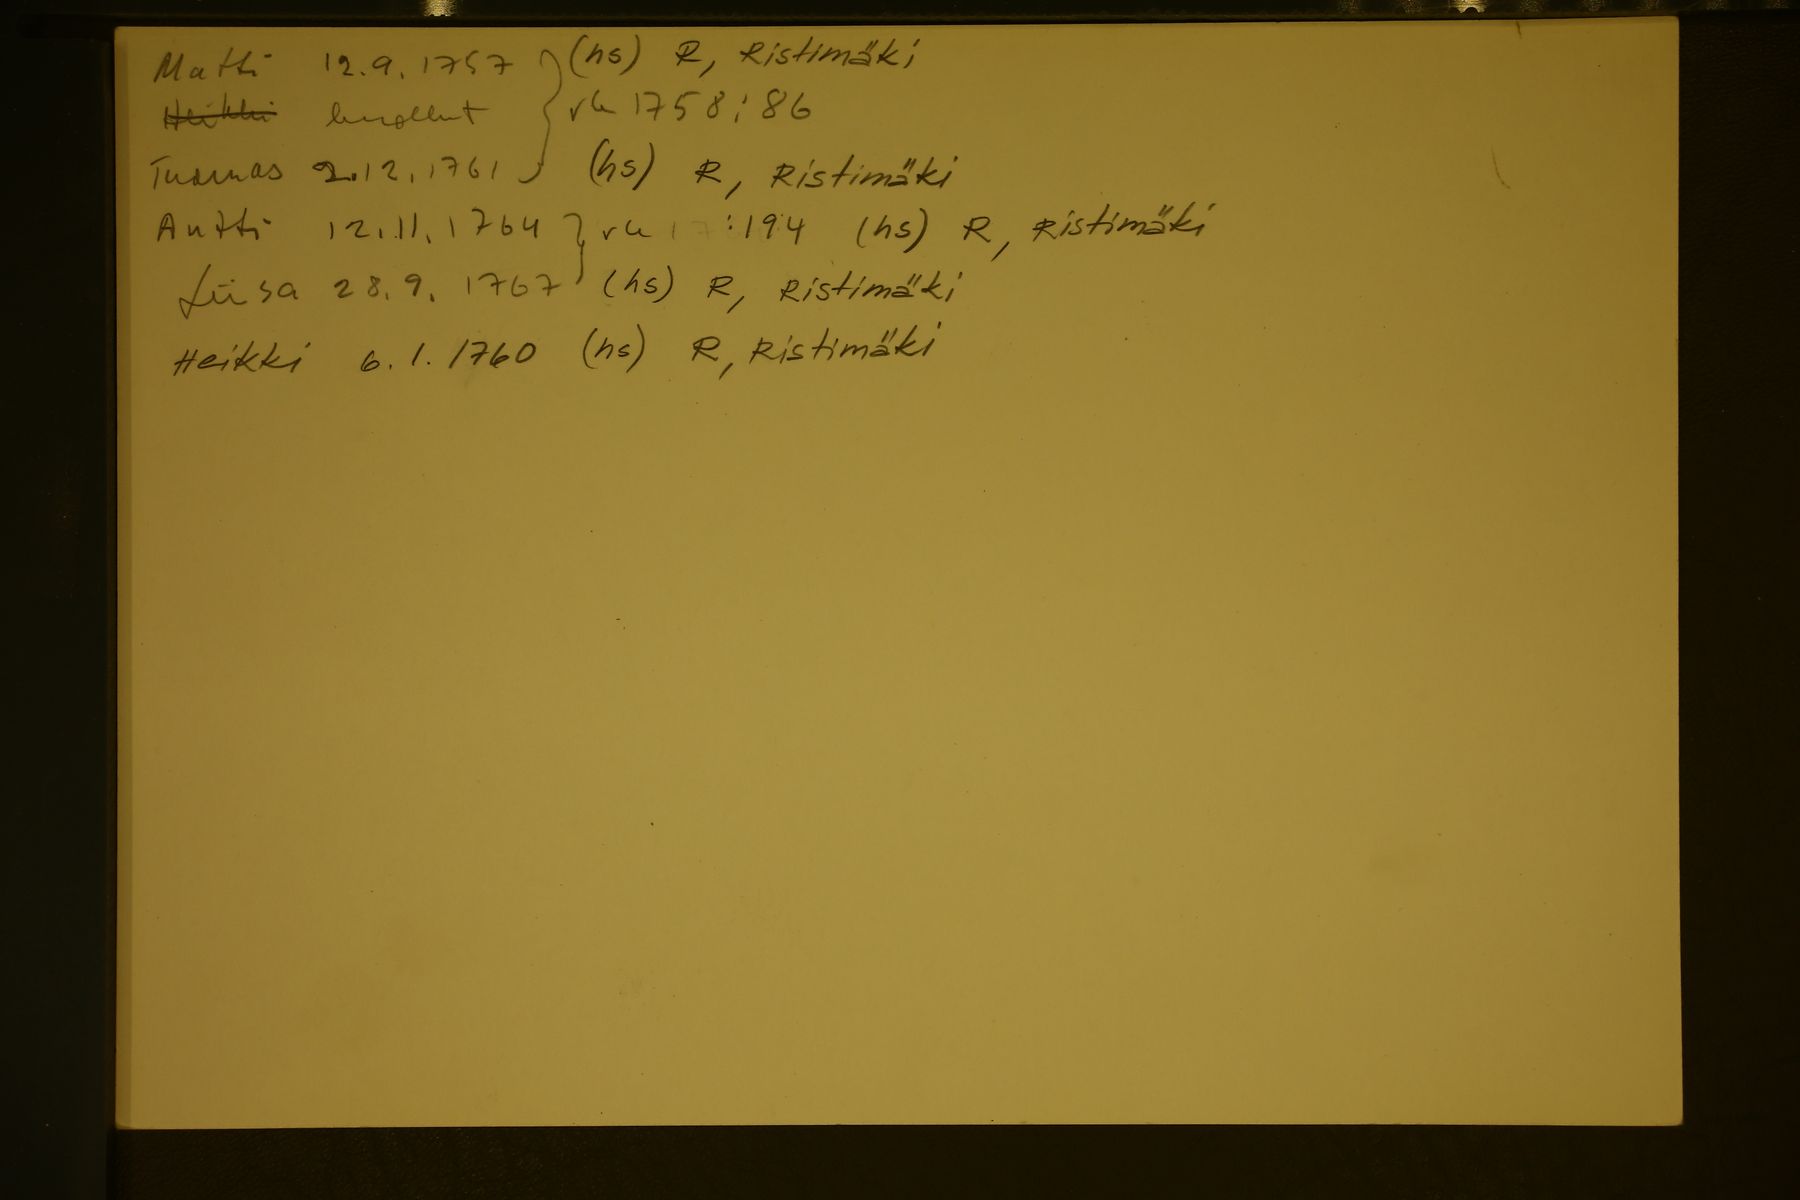 Matti 12.9.1757 } (hs) R, Ristimäki
Heikki kuollut } rk 1758:86
Tuomas 2.12.1761 } (hs) R, Ristimäki
Antti 12.11.1764 } rk 17 :194 (hs) R, Ristimäki
Liisa 28.9.1767 } (hs) R, Ristimäki
Heikki 6.1.1760 (hs) R, Ristimäki